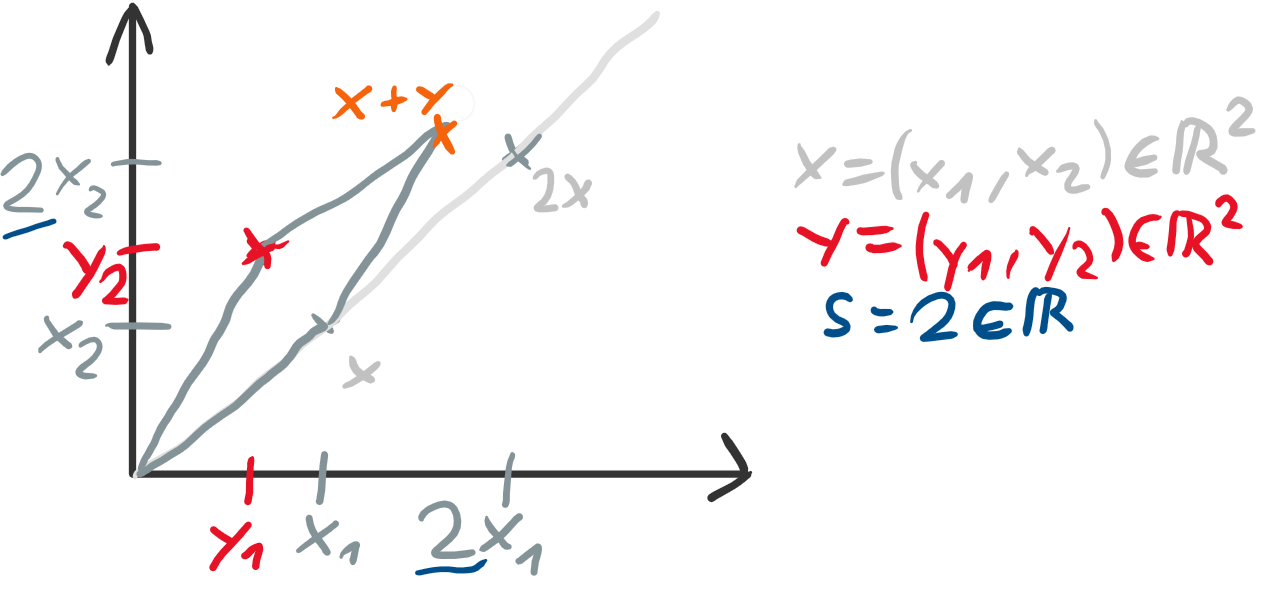 x + y
2x₂
2x
y₂
x₂
x
y₁ x₁ 2x₁
x = (x₁, x₂) ∈ ℝ²
y = (y₁, y₂) ∈ ℝ²
s = 2 ∈ ℝ